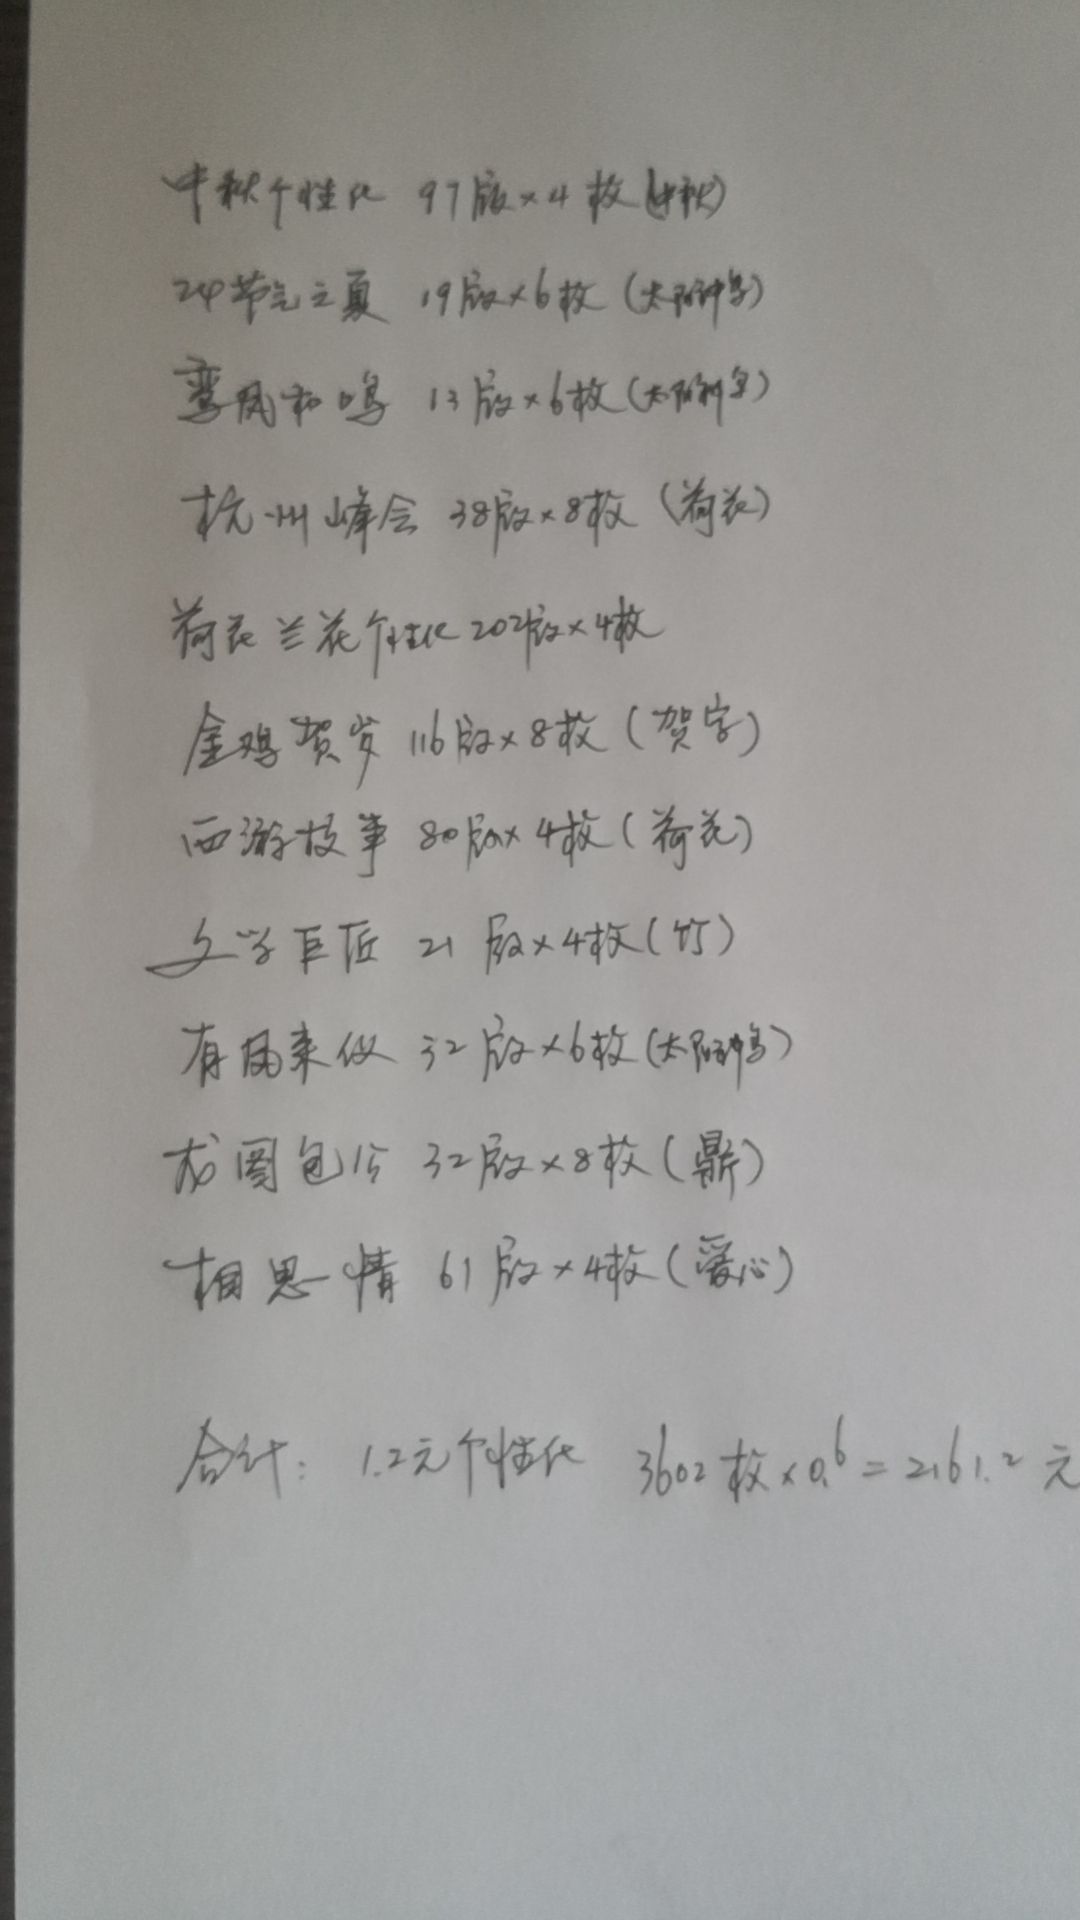 中秋个性化 97版×4枚(中秋)
24节气之夏 19版×6枚(太阳神鸟)
鸾凤和鸣 13版×6枚(太阳神鸟)
杭州峰会 38版×8枚(荷花)
荷花兰花个性化202版×4枚
金鸡贺岁 116版×8枚(贺字)
西游故事 80版×4枚(荷花)
文学巨匠 21版×4枚(竹)
有凤来仪 32版×6枚(太阳神鸟)
龙图包公 32版×8枚(鼎)
相思一情 61版×4枚(爱心)
合计: 1.2元个性化 3602枚×0.6=2161.2元